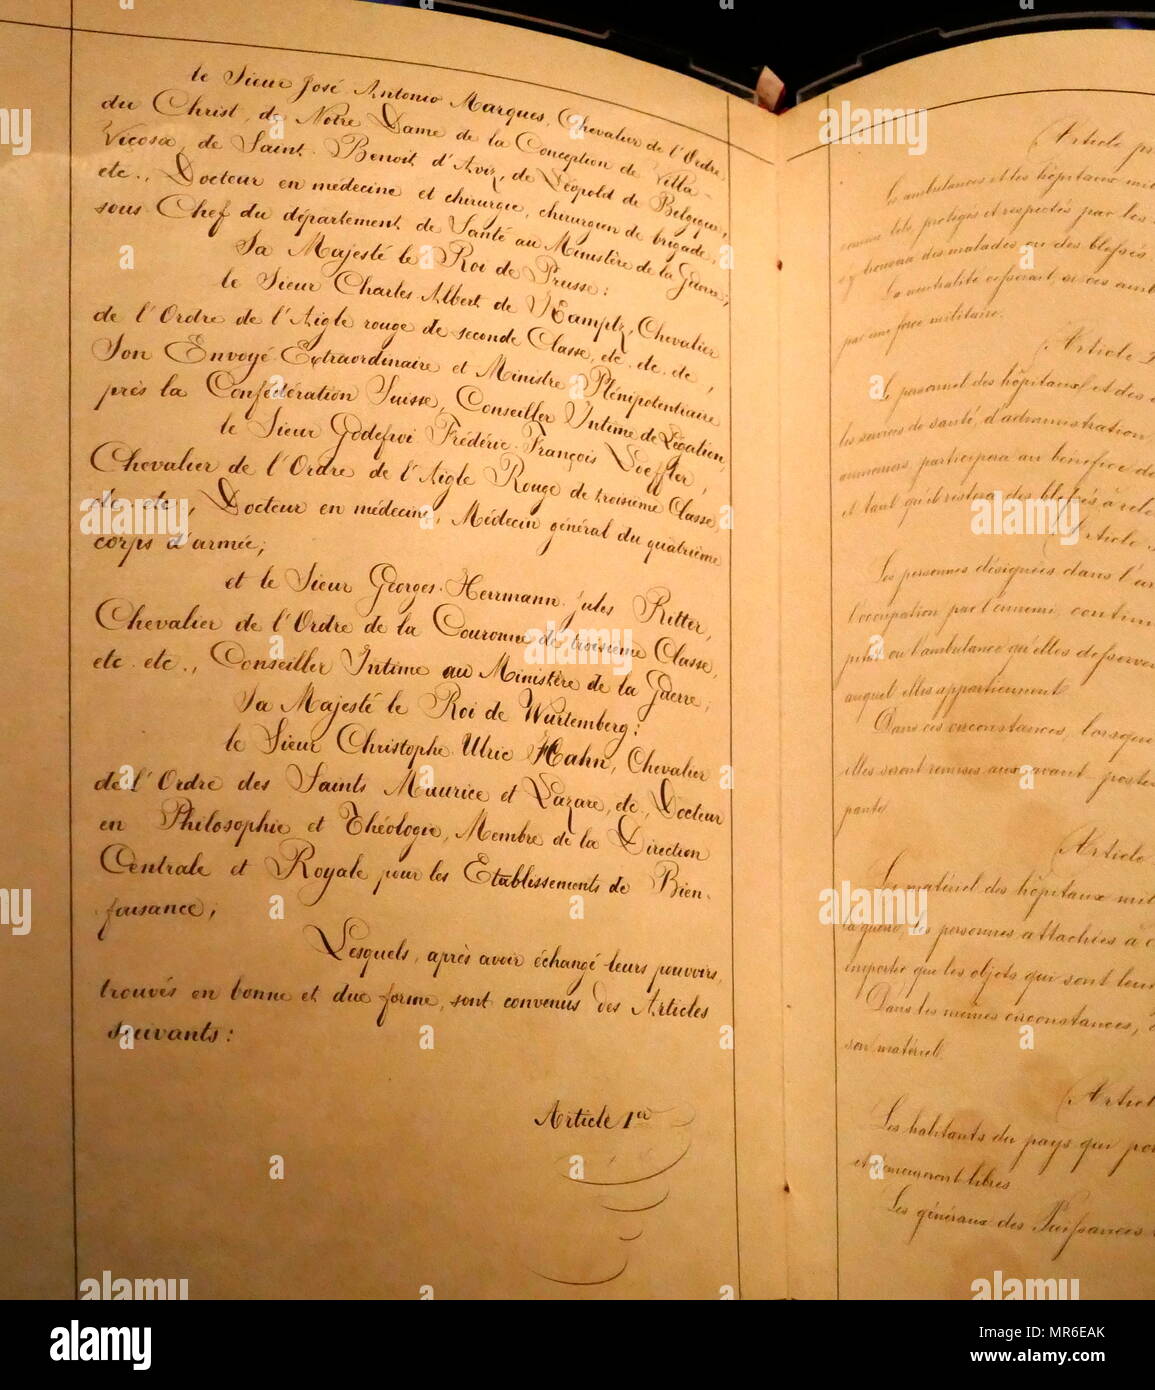 le Sieur José Antonio Marques, Chevalier de l'Ordre
du Christ, de Notre Dame de la Conception de Villa-
Viçosa, de Saint-Benoit d'Aviz, de Léopold de Belgique,
etc., Docteur en médecine et chirurgie, chirurgien de brigade,
sous-Chef du département de Santé au Ministère de la Guerre;
Sa Majesté le Roi de Prusse:
le Sieur Charles-Albert de Kamptz, Chevalier
de l'Ordre de l'Aigle rouge de seconde Classe, etc. etc. etc.,
Son Envoyé Extraordinaire et Ministre Plénipotentiaire
près la Confédération Suisse, Conseiller Intime de Légation,
le Sieur Godefroi Frédéric-François Loeffler,
Chevalier de l'Ordre de l'Aigle Rouge de troisième Classe,
etc. etc., Docteur en médecine, Médecin général du quatrième
corps d'armée;
et le Sieur Georges-Herrmann-Jules Ritter,
Chevalier de l'Ordre de la Couronne de troisième Classe,
etc. etc., Conseiller Intime au Ministère de la Guerre;
Sa Majesté le Roi de Wurtemberg:
le Sieur Christophe-Ulric Hahn, Chevalier
de l'Ordre des Saints Maurice et Lazare, etc., Docteur
en Philosophie et Théologie, Membre de la Direction
Centrale et Royale pour les Etablissements de Bien-
faisance;
Lesquels, après avoir échangé leurs pouvoirs,
trouvés en bonne et due forme, sont convenus des Articles
suivants:
Article 1er
Article
Les ambulances et les hôpitaux
comme tels, protégés et respectés par les
s'y trouvera des malades ou des blessés.
La neutralité cesserait, si ces
par une force militaire.
Article
Le personnel des hôpitaux et des
les services de santé, d'administration,
participera au bénéfice de
et tant qu'il restera des blessés à
Article
Les personnes désignées dans
l'occupation par l'ennemi,
ou l'ambulance qu'elles desservent
auquel elles appartiennent.
Dans ces circonstances, lorsque
elles seront remises aux avant-postes
Article
Le matériel des hôpitaux
la guerre, les personnes attachées à
emporter que les objets qui sont leur
Dans les mêmes circonstances,
son matériel.
Article
Les habitants du pays qui
et demeureront libres.
Les généraux des Puissances
alamy
MR6EAK
www.alamy.com